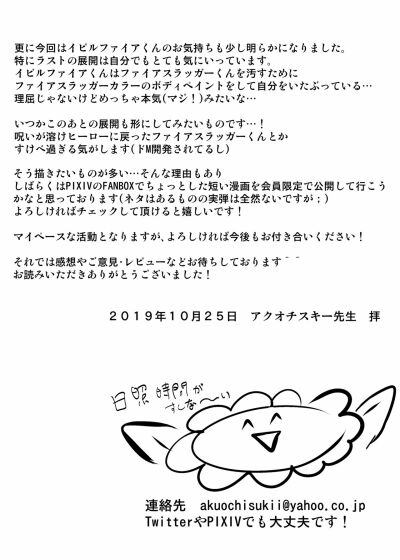 更に今回はイビルファイアくんのお気持ちも少し明らかになりました。
特にラストの展開は自分でもとても気にいっています。
イビルファイアくんはファイアスラッガーくんを汚すために
ファイアスラッガーカラーのボディペイントをして自分をいたぶっている…
理屈じゃないけどめっちゃ本気(マジ！)みたいな…
いつかこのあとの展開も形にしてみたいものです…！
呪いが溶けヒーローに戻ったファイアスラッガーくんとか
すけべ過ぎる気がします(ドM開発されてるし)
そう描きたいものが多い…そんな理由もあり
しばらくはPIXIVのFANBOXでちょっとした短い漫画を会員限定で公開して行こう
かなと思っております(ネタはあるものの実弾は全然ないですが；)
よろしければチェックして頂けると嬉しいです！
マイペースな活動となりますが、よろしければ今後もお付き合いください！
それでは感想やご意見・レビューなどお待ちしております＾＾
お読みいただきありがとうございました！
２０１９年１０月２５日　アクオチスキー先生　拝
日照時間が
すくしな〜い
連絡先　akuochisukii@yahoo.co.jp
TwitterやPIXIVでも大丈夫です！